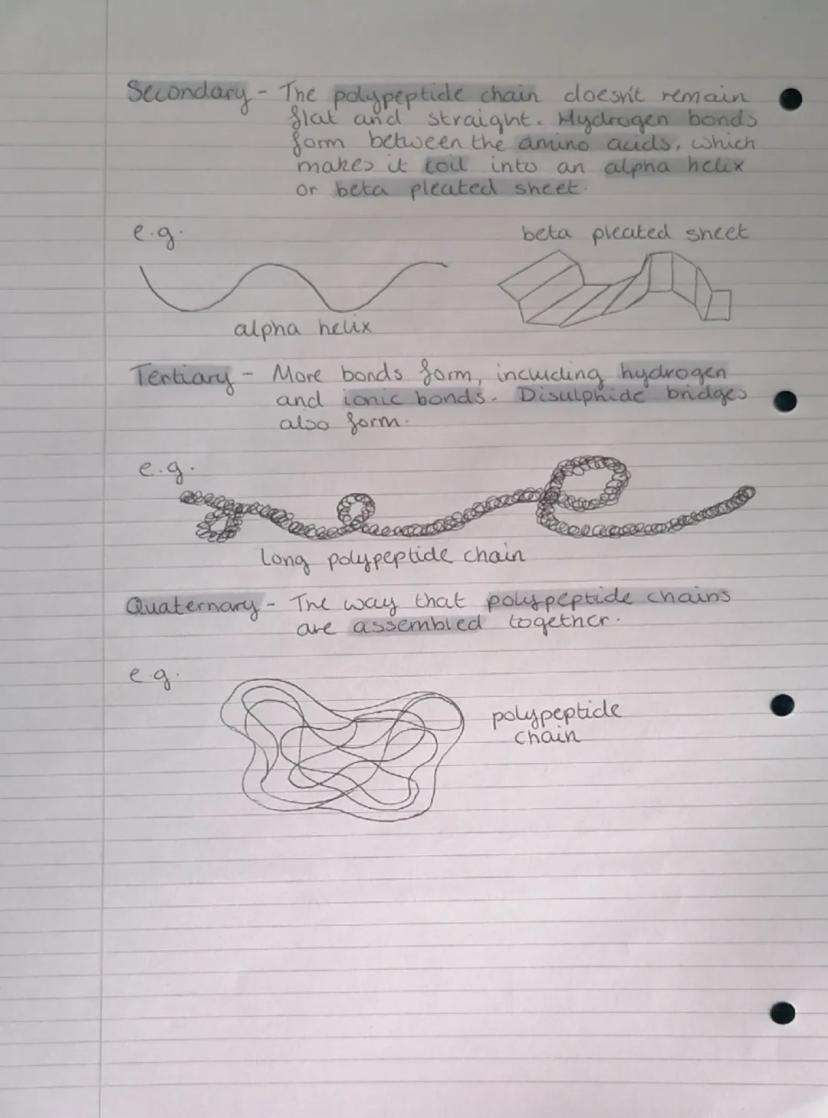 Secondary - The polypeptide chain doesn't remain
flat and straight. Hydrogen bonds
form between the amino acids, which
makes it coil into an alpha helix
or beta pleated sheet.
e.g.
beta pleated sheet
alpha helix
Tertiary - More bonds form, including hydrogen
and ionic bonds. Disulphide bridges
also form.
e.g.
Long polypeptide chain
Quaternary - The way that polypeptide chains
are assembled together.
e.g.
polypeptide
chain